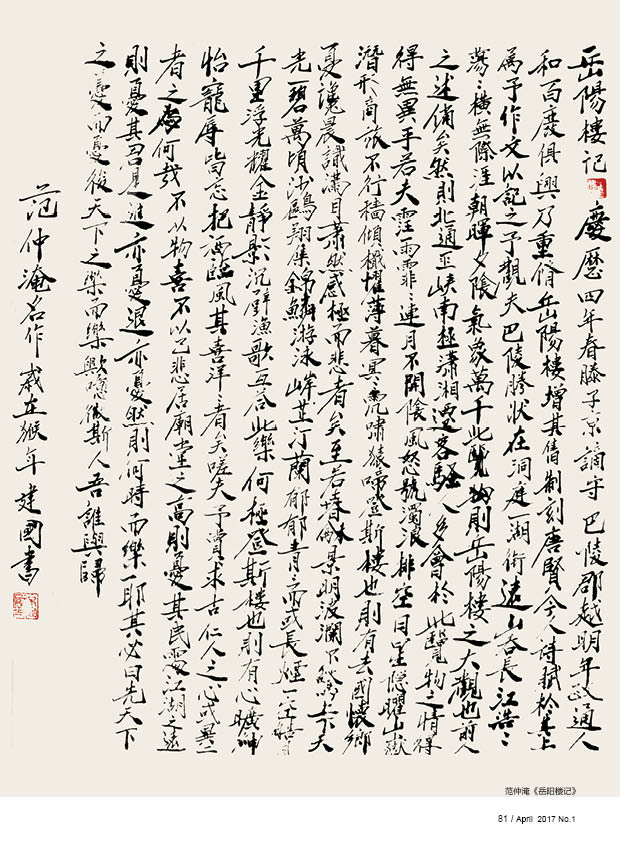 岳陽樓記 慶曆四年春滕子京謫守巴陵郡越明年政通人
和百廢俱興乃重脩岳陽樓增其舊制刻唐賢今人詩賦於其上
為予作文以記之予觀夫巴陵勝狀在洞庭一湖銜遠山吞長江浩〻
蕩〻橫無際涯朝暉夕陰氣象萬千此覽物則岳陽樓之大觀也前人
之述備矣然則北通巫峽南極瀟湘遷客騷人多會於此覽物之情得
得無異乎若夫霪雨霏〻連月不開陰風怒號濁浪排空日星隱曜山嶽
潛形商旅不行檣傾檝摧薄暮冥〻虎嘯猿啼登斯樓也則有去國懷鄉
憂讒畏譏滿目蕭然感極而悲者矣至若春和景明波瀾不驚上下天
光一碧萬頃沙鷗翔集錦鱗游泳岸芷汀蘭郁郁青〻而或長煙一空皓月
千里浮光耀金靜影沉璧漁歌互答此樂何極登斯樓也則有心曠神
怡寵辱皆忘把酒臨風其喜洋〻者矣嗟夫予嘗求古仁人之心或異二
者之為何哉不以物喜不以己悲居廟堂之高則憂其民處江湖之遠
則憂其君是進亦憂退亦憂然則何時而樂耶其必曰先天下
之憂而憂後天下之樂而樂歟噫微斯人吾誰與歸
范仲淹名作歲在猴年建國書
范仲淹《岳阳楼记》
81 / April 2017 No.1